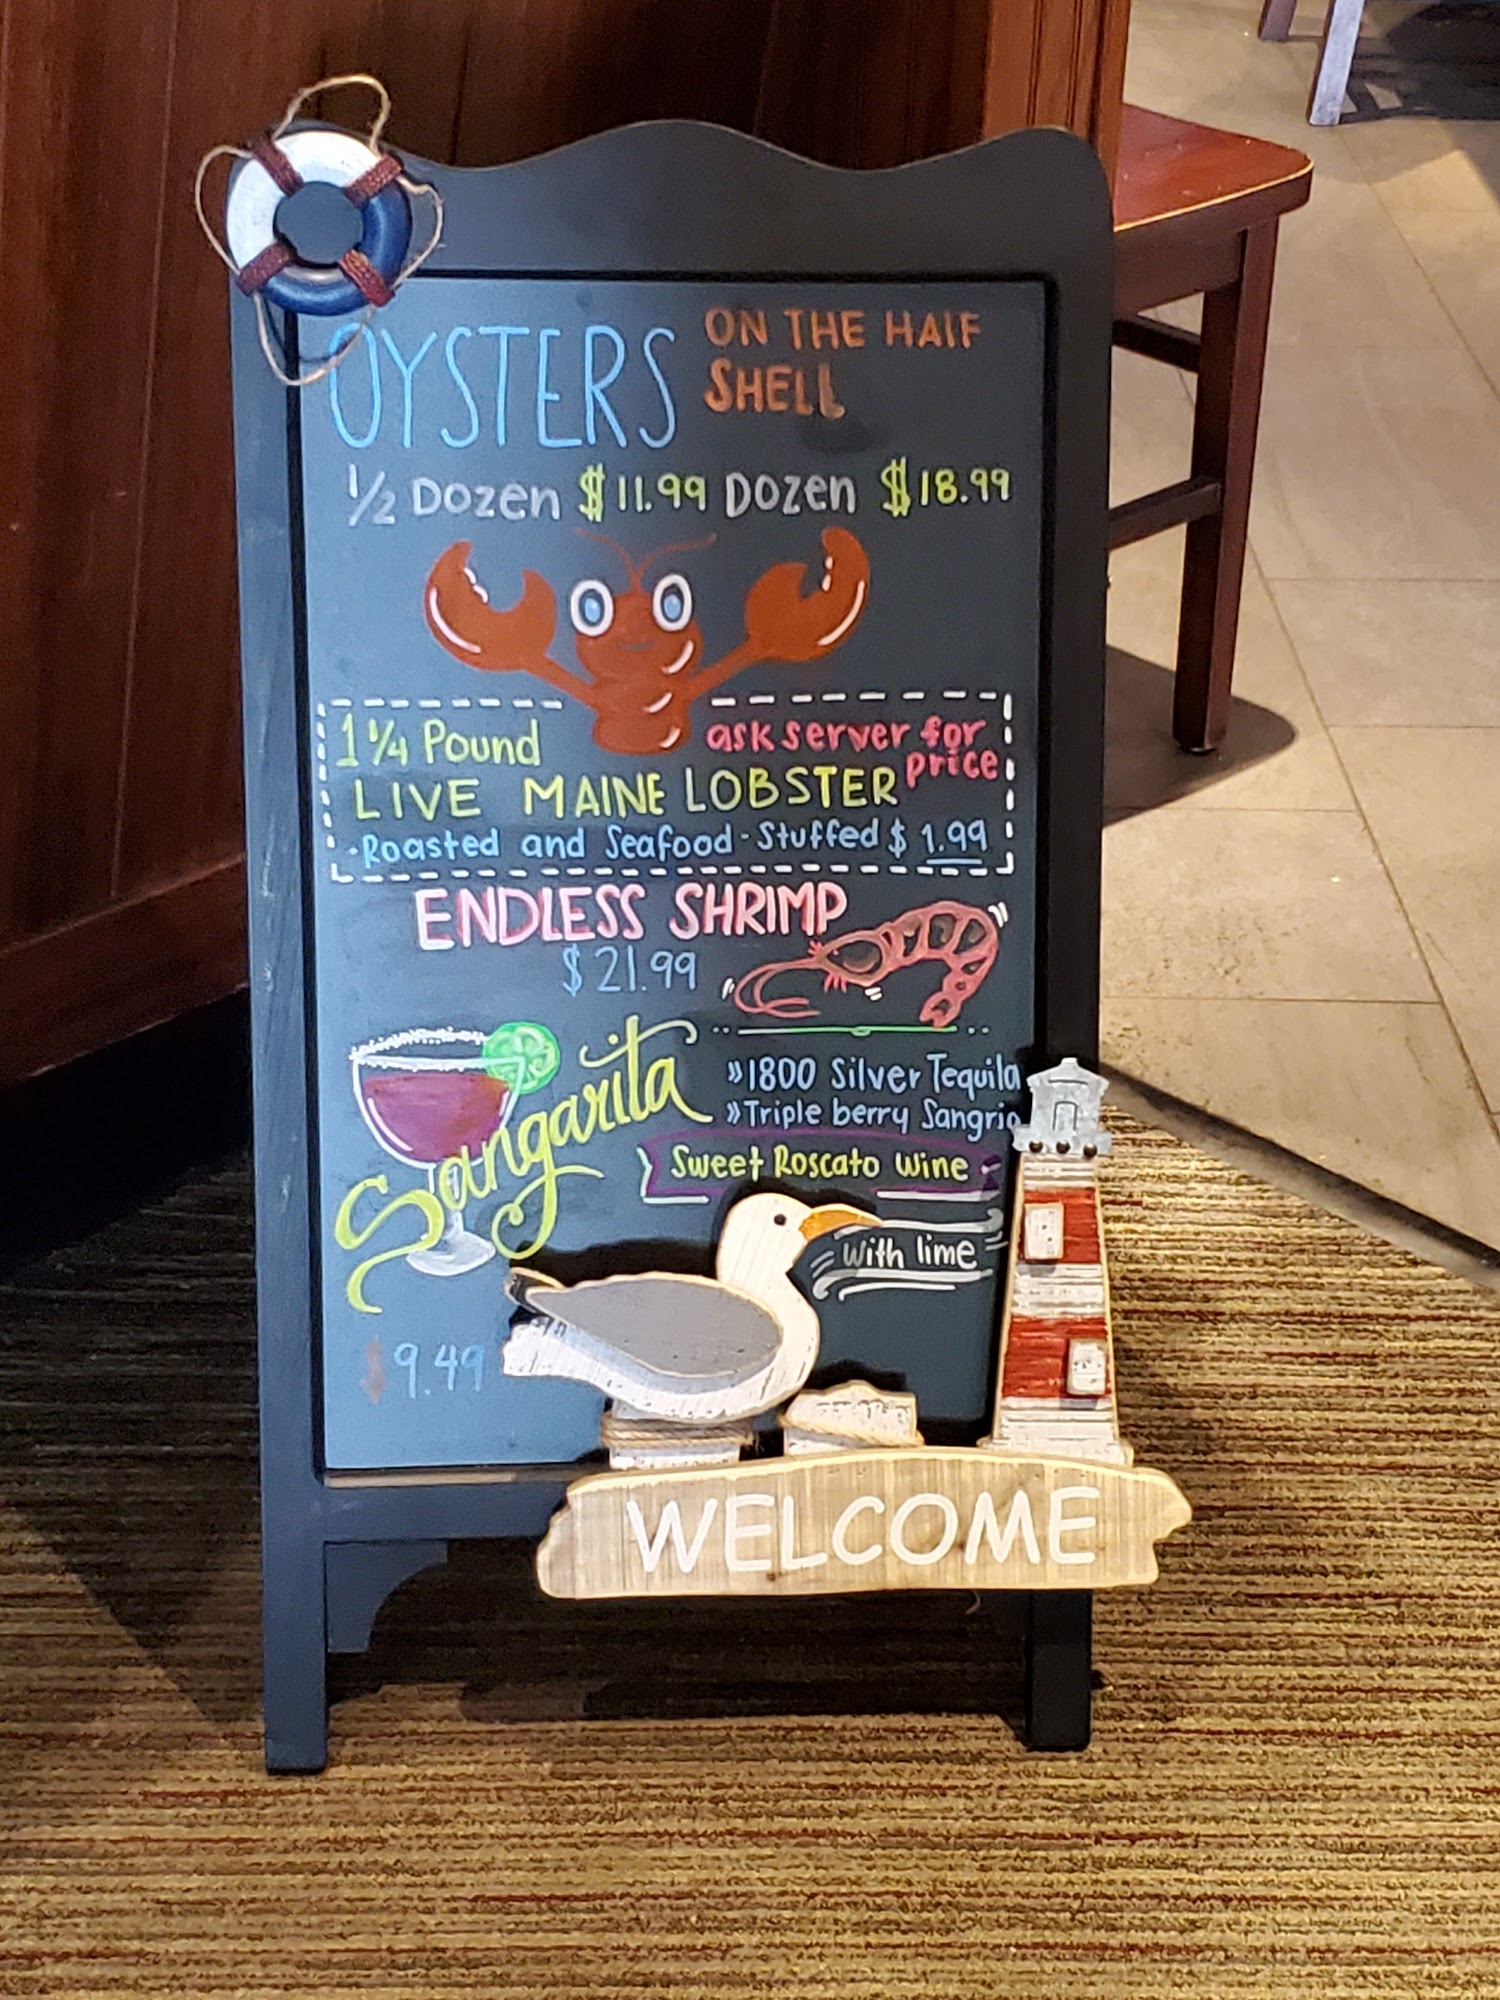 OYSTERS ON THE HALF
SHELL
1/2 Dozen $11.99 Dozen $18.99
1 1/4 Pound ask server for
price
LIVE MAINE LOBSTER
·Roasted and Seafood-Stuffed $ 1.99
ENDLESS SHRIMP
$21.99
Sangarita
»1800 Silver Tequila
»Triple berry Sangria
Sweet Roscato Wine
with lime
$9.49
WELCOME